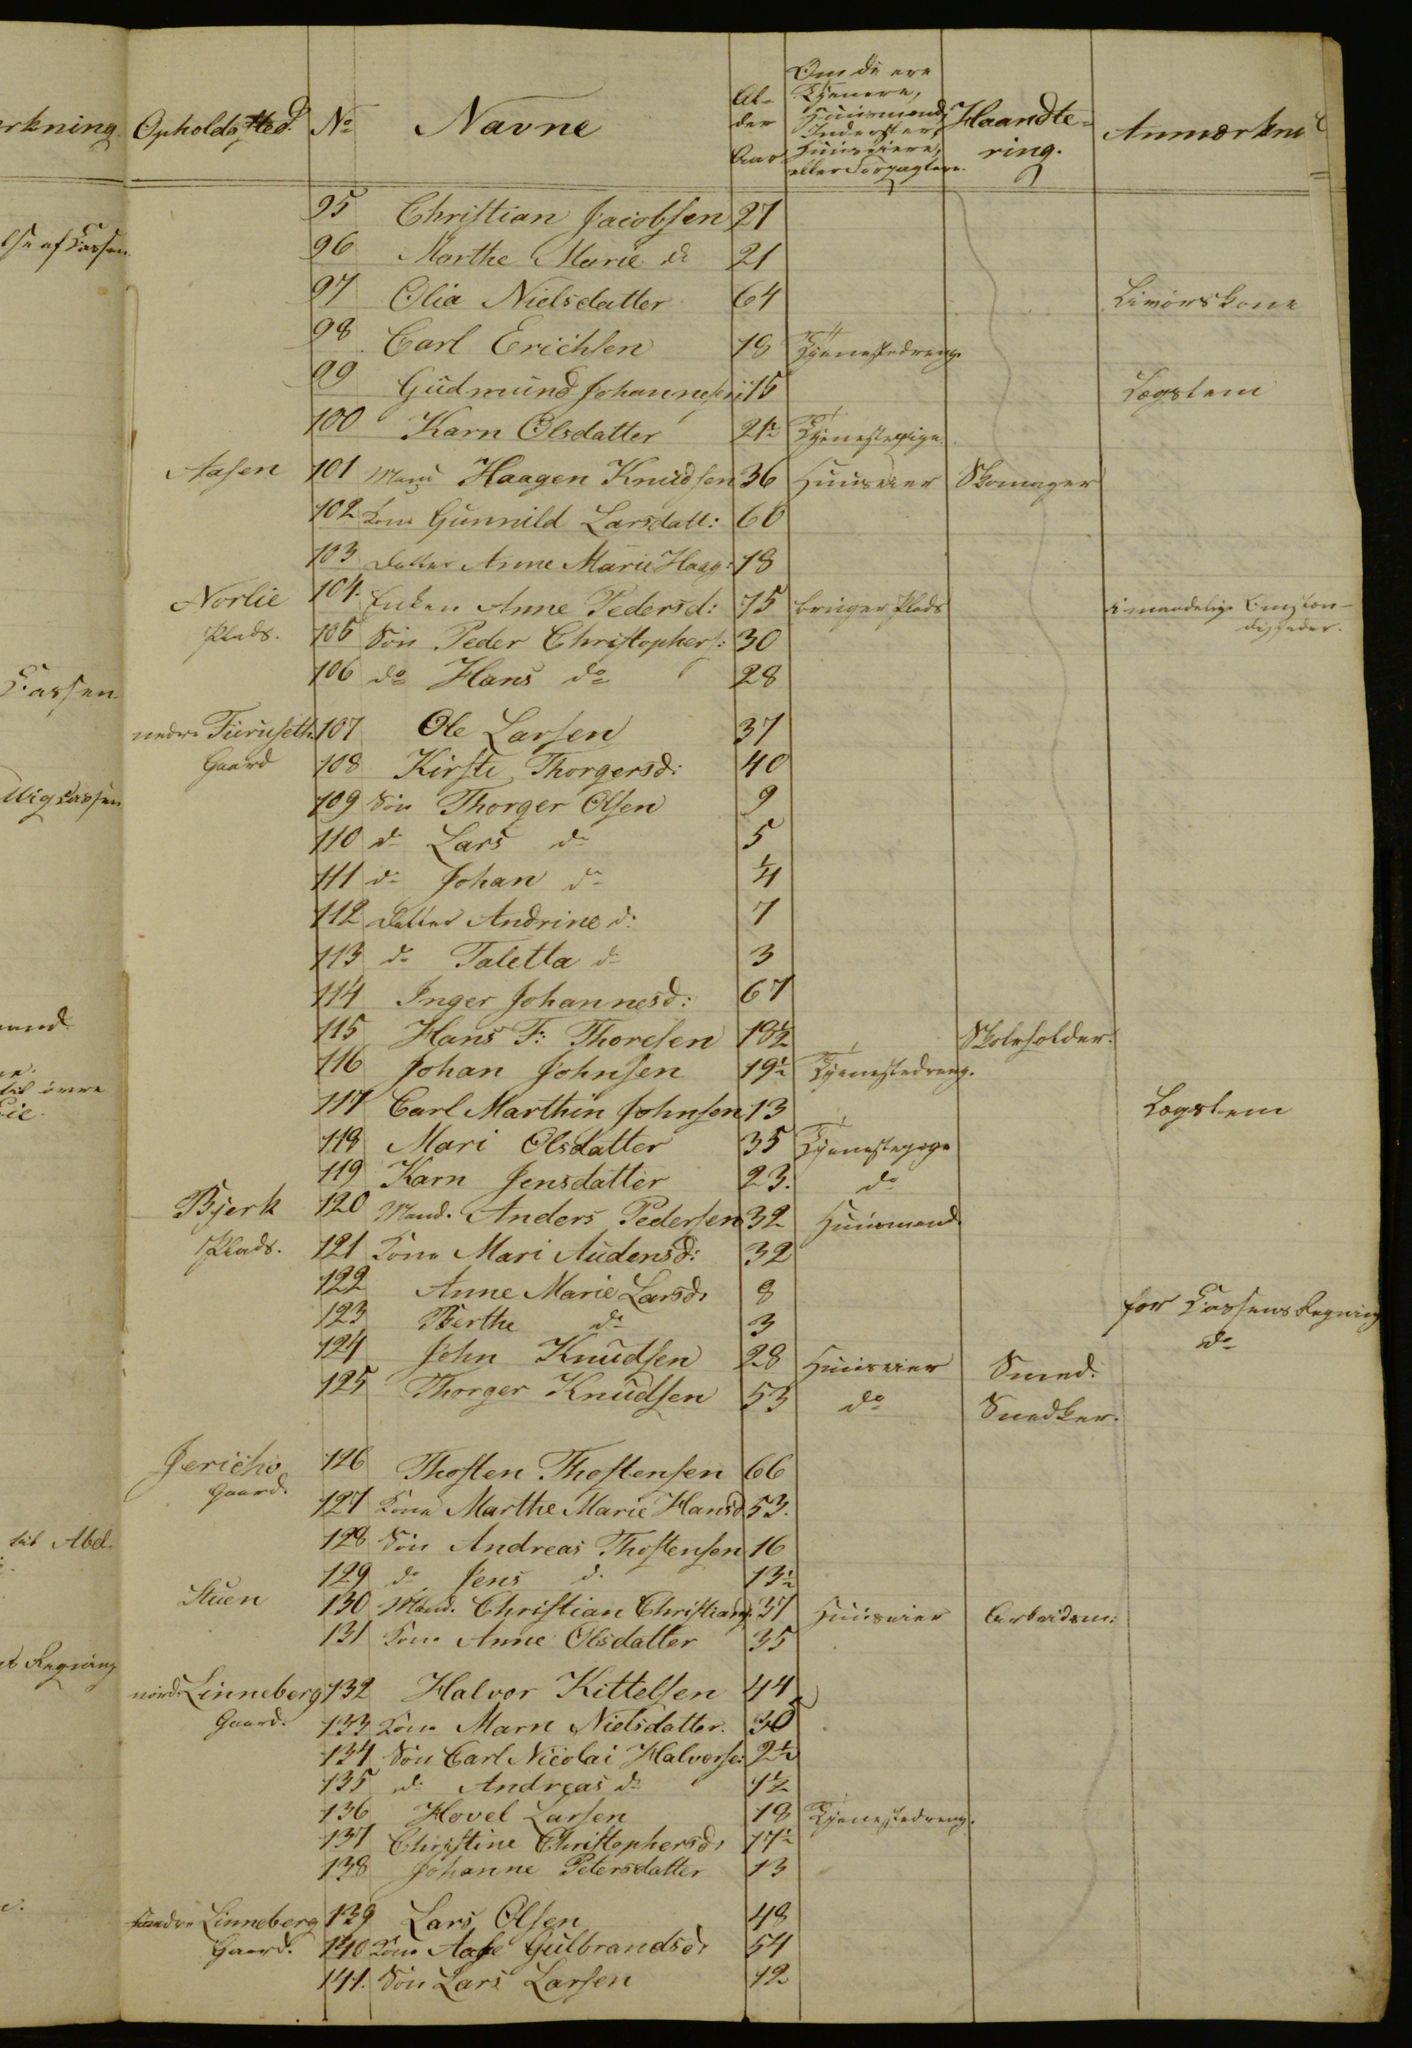 Opholdssted. No Navne Alder Aar Om de ere Tjenere, Huusmænd, Inderster, Huuseiere, eller Forpagtere. Haandtering. Anmærkni
95 Christian Jacobsen 27
96 Marthe Marie do 21
97 Olia Nielsdatter 64 Livørskone
98 Carl Erichsen 18 Tjenestedreng
99 Gudmund Johannesen 15 Lægslem
100 Karn Olsdatter 21½ Tjenestepige.
Aasen 101 Mand Haagen Knudsen 36 Huuseier Skomager
102 Kone Gunnild Larsdatt: 60
103 Datter Anne Marie Haag: 18
Norlie 104. Enken Anne Pedersd: 75 bruger Plads i maadelige Omstændigheder.
Plads. 105 Søn Peder Christophers: 30
106 do Hans do 28
nedre Furuseth 107 Ole Larsen 37
Gaard 108 Kirsti Thorgersd: 40
109 Søn Thorger Olsen 9
110 do Lars do 5
111 do Johan do ¼
112 Datter Andrine d: 7
113 do Taletta do 3
114 Inger Johannesd: 67
115 Hans F: Thoresen 18½ Skoleholder.
116 Johan Johnsen 19½ Tjenestedreng.
117 Carl Marthin Johnsen 13 Lægslem
118 Mari Olsdatter 35 Tjenestepige
119 Karn Jensdatter 23. do
Bjerk 120 Mand. Anders Pedersen 32 Huusmand
Plads. 121 Kone Mari Audensd: 32
122 Anne Marie Larsd: 8 for Cassens Regning
123 Berthe do 3 do
124 John Knudsen 28 Huuseier Smed.
125 Thorger Knudsen 53 do Snedker.
Jericho 126 Thosten Thostensen 66
Gaard. 127 Kone Marthe Marie Hansd 53.
128 Søn Andreas Thostensen 16
129 do Jens d. 13½
Stuen 130 Mand. Christian Christians: 37 Huuseier Arbeidsm:
131 Kone Anne Olsdatter 35
nord Linneberg 132 Halvor Kittelsen 44
Gaard. 133 Kone Marn Nielsdatter. 30
134 Søn Carl Nicolai Halvorse: 2½
135 do Andreas do 1½
136 Hovel Larsen 18 Tjenestedreng.
137 Christine Christophersd: 17½
138 Johanne Petersdatter 13
søndre Linneberg 139 Lars Olsen 48
Gaard. 140 Kone Aase Gulbrandsd: 54
141. Søn Lars Larsen 12